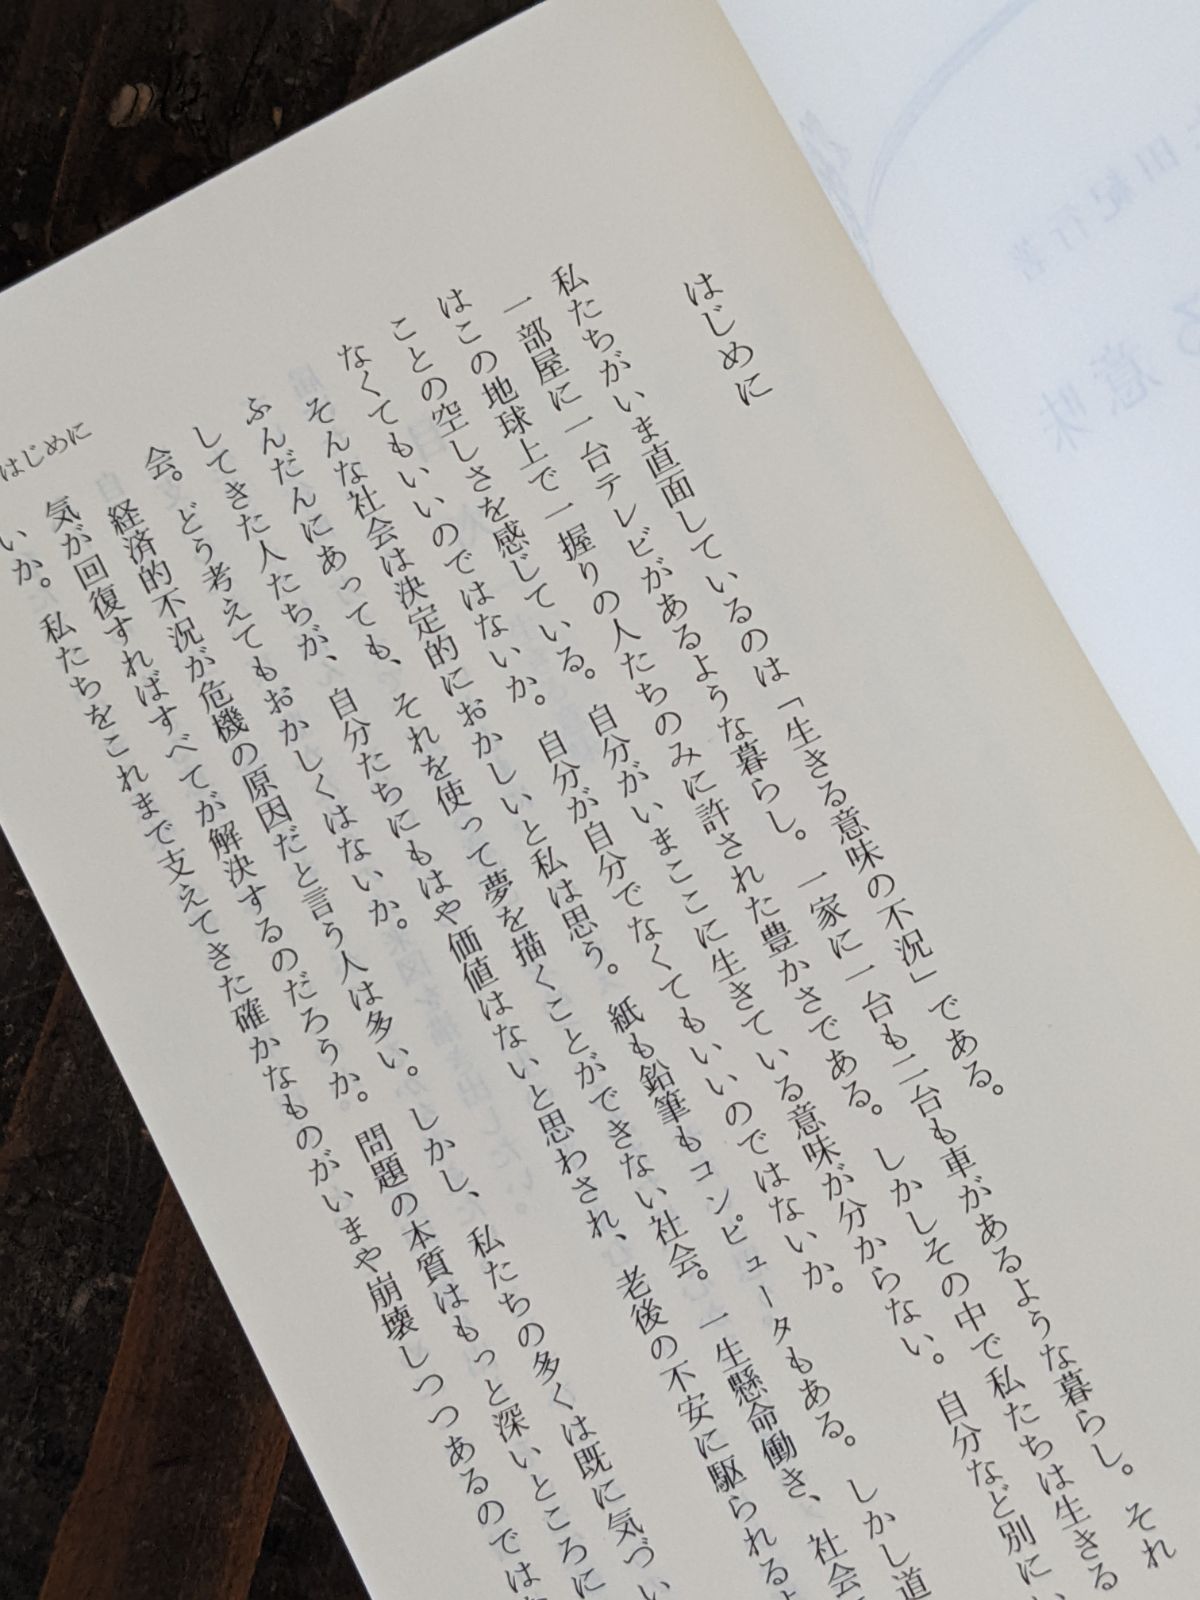 はじめに
私たちがいま直面しているのは「生きる意味の不況」である。
一部屋に一台テレビがあるような暮らし。一家に一台も二台も車があるような暮らし。それ
はこの地球上で一握りの人たちのみに許された豊かさである。しかしその中で私たちは生きる
ことの空しさを感じている。自分がいまここに生きている意味が分からない。自分など別にい
なくてもいいのではないか。自分が自分でなくてもいいのではないか。
そんな社会は決定的におかしいと私は思う。紙も鉛筆もコンピュータもある。しかし道
ふんだんにあっても、それを使って夢を描くことができない社会。一生懸命働き、社会
してきた人たちが、自分たちにもはや価値はないと思わされ、老後の不安に駆られるよ
会。どう考えてもおかしくはないか。
経済的不況が危機の原因だと言う人は多い。しかし、私たちの多くは既に気づい
気が回復すればすべてが解決するのだろうか。問題の本質はもっと深いところに
いか。私たちをこれまで支えてきた確かなものがいまや崩壊しつつあるのでは
はじめに
田紀行著
る意味